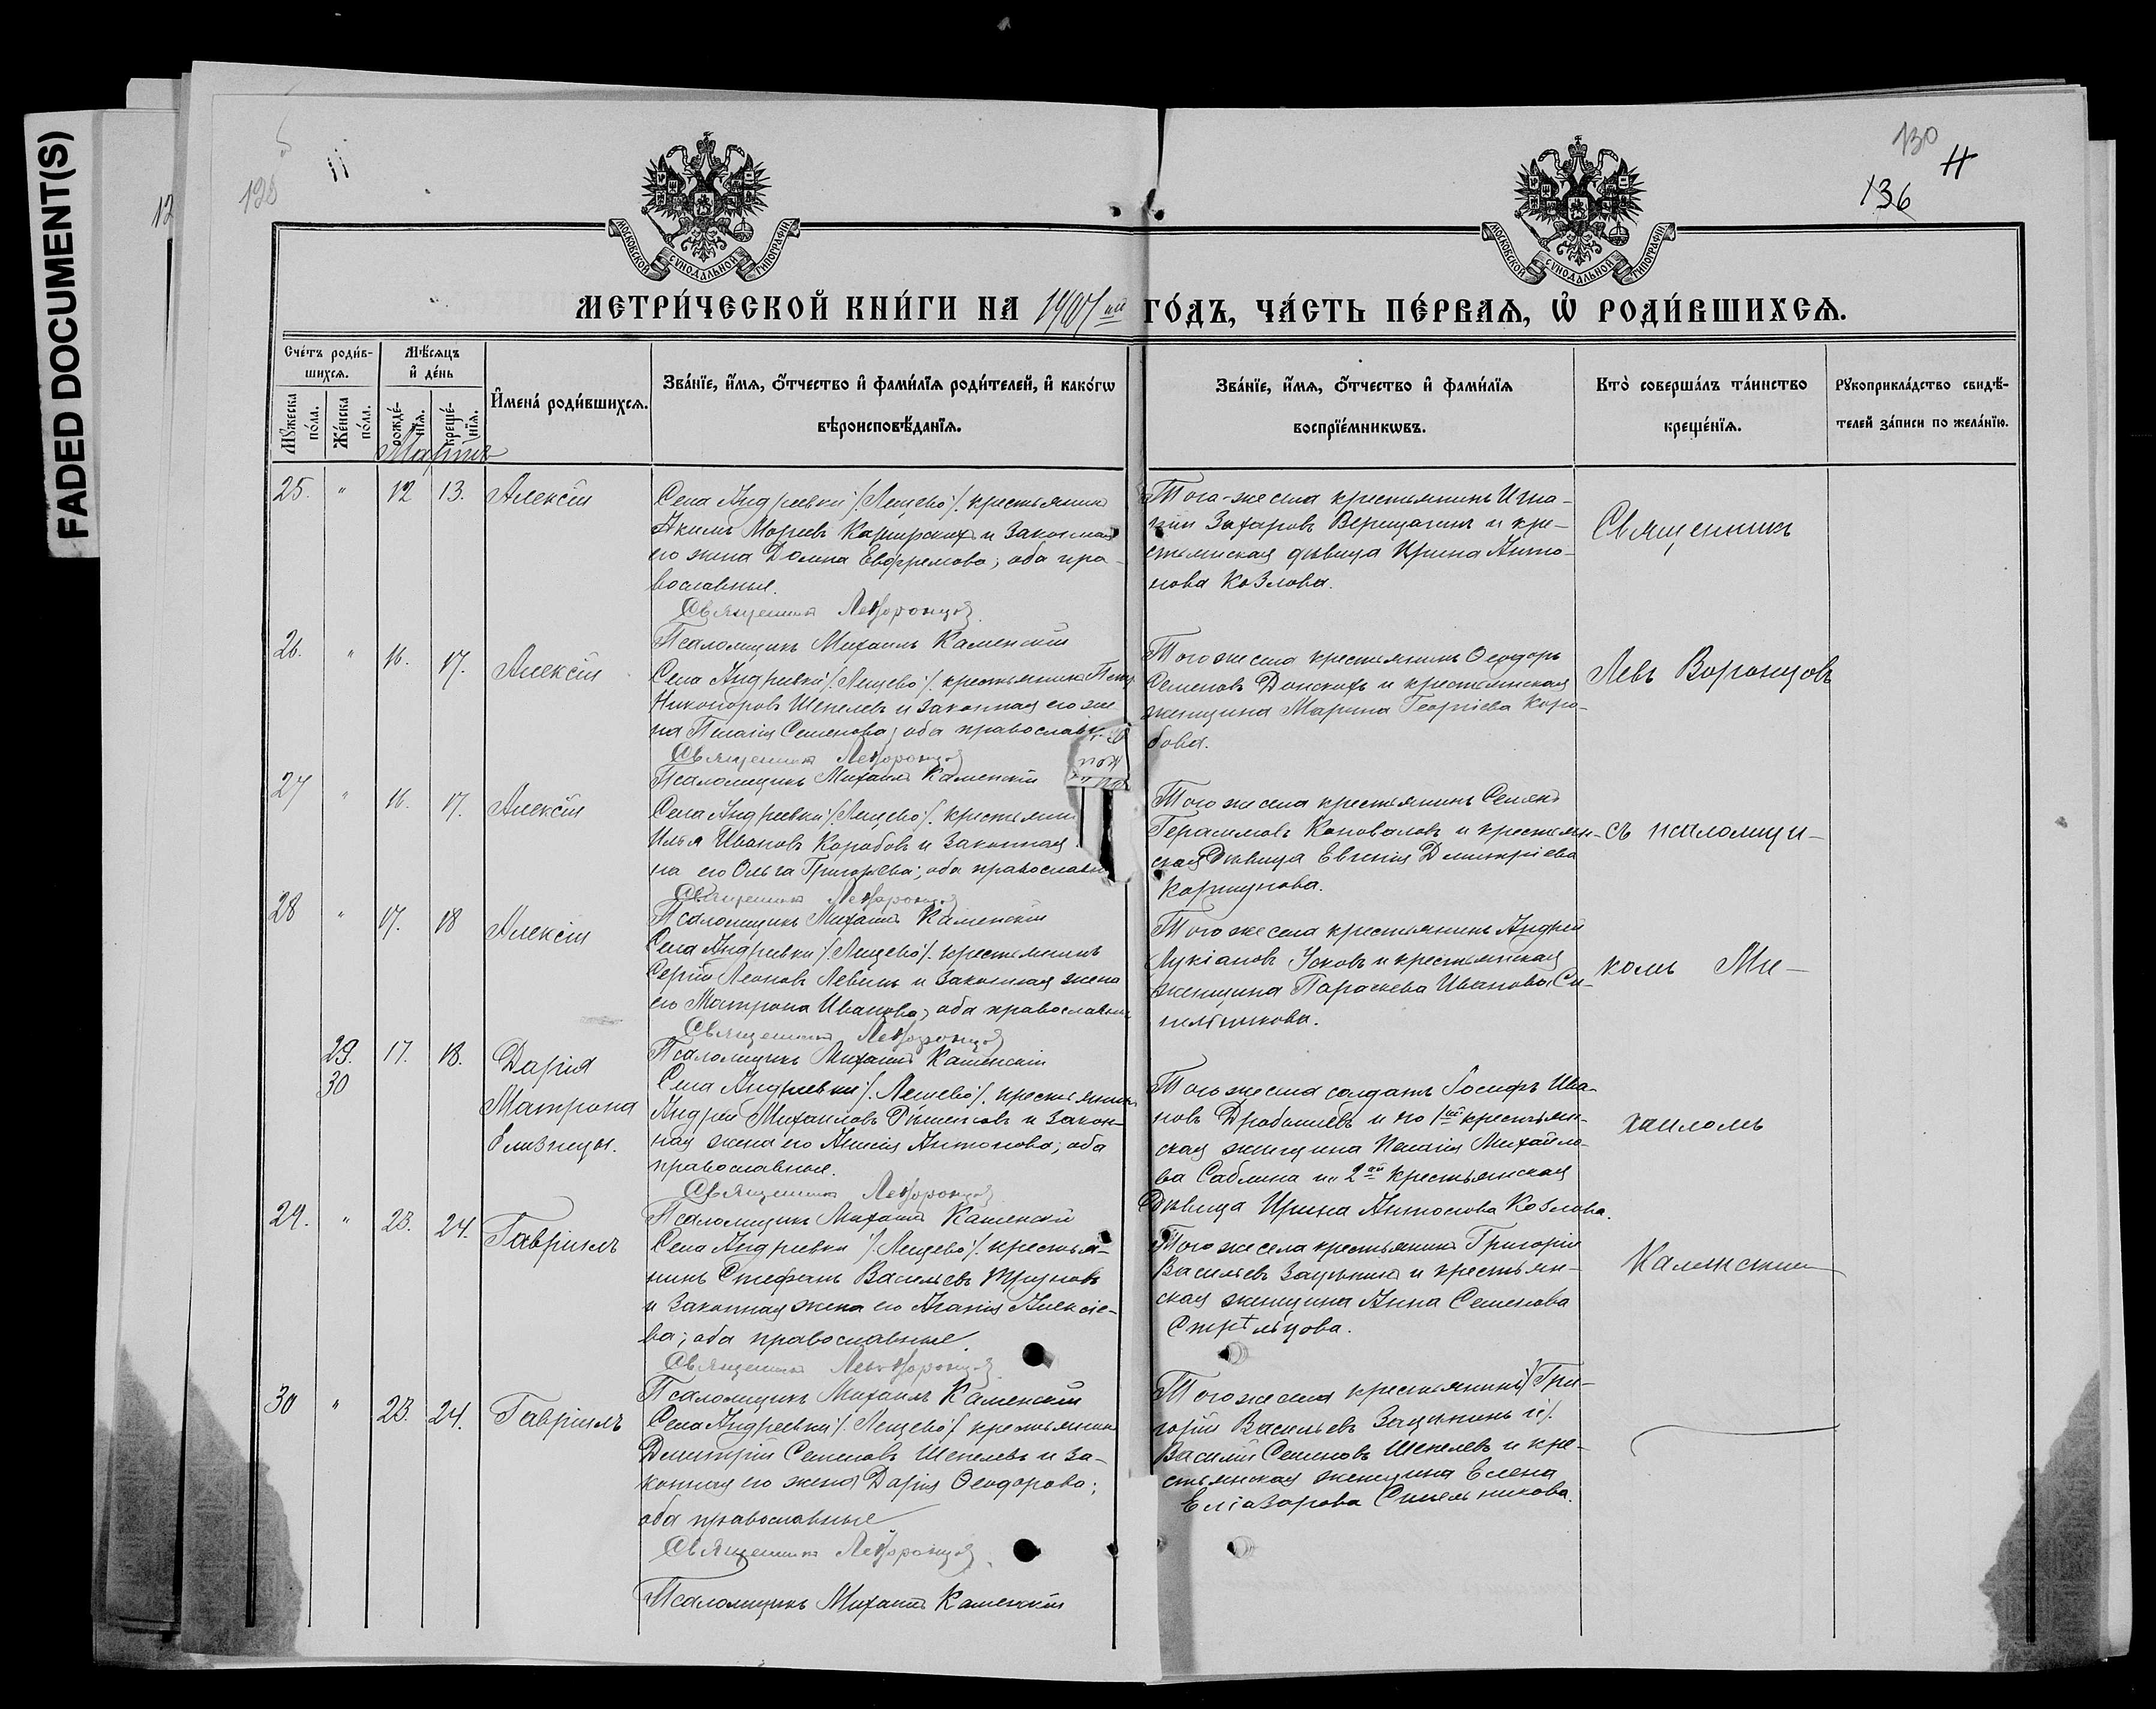 FADED DOCUMENT(S)
12
11
128
130
H
136
МОСКОВСКОЙ СѴНОДАЛЬНОЙ ТИПОГРАФІИ
МОСКОВСКОЙ СѴНОДАЛЬНОЙ ТИПОГРАФІИ
МЕТРИ́ЧЕСКОЙ КНИ́ГИ НА 1907 ый ГО́ДЪ, ЧА́СТЬ ПЕ́РВАѦ, Ѡ҆ РОДИ́ВШИХСѦ.
Сче́тъ роди́в-
шихсѧ.
Мꙋжеска по́ла.
Же́нска по́ла.
Мѣ́сѧцъ
и҆ де́нь
рожде́-
нїѧ.
креще́-
нїѧ.
И҆мена̀ роди́вшихсѧ.
Зва́нїе, и҆́мѧ, ѻ҆́тчество и҆ фами́лїѧ роди́телей, и҆ како́гѡ
вѣроисповѣ́данїѧ.
Зва́нїе, и҆́мѧ, ѻ҆́тчество и҆ фами́лїѧ
воспрїе́мникѡвъ.
Кто̀ соверша́лъ та́инство
креще́нїѧ.
Рꙋкоприкла́дство свидѣ́-
телей за́писи по жела́нїю.
Мартъ
25. " 12 13. Алексій
Села Андреевки /Лещево/ крестьянинъ
Акимъ Каширскихъ и законная
его жена Домна Евфремова; оба пра-
вославные.
Священникъ Лев Воронцовъ
Псаломщикъ Михаилъ Каменскій
Того-же села крестьянинъ Игна-
тій Захаровъ Верещагинъ и кре-
стьянская дѣвица Ирина Анто-
нова Козлова.
Священникъ
26. " 16. 17. Алексій
Села Андреевки /Лещево/ крестьянинъ Петр
Никоноровъ Шепелевъ и законная его же
на Пелагія Семенова; оба православ
Священникъ Лев Воронцовъ
Псаломщикъ Михаилъ Каменскій
Того же села крестьянинъ Ѳеодоръ
Семеновъ Донскихъ и крестьянская
женщина Марина Георгіева Коро-
бова.
Левъ Воронцовъ
27 " 16. 17. Алексій
Села Андреевки /Лещево/ крестьянин
Илья Ивановъ Коробовъ и законная
на его Ольга Григорьева; оба православн
Священникъ Лев Воронцовъ
Псаломщикъ Михаилъ Каменскій
Того же села крестьянинъ Семенъ
Герасимовъ Коноваловъ и крестьян-
ская дѣвица Евгенія Димитріева
Коршунова.
съ псаломщи-
28 " 17. 18 Алексій
Села Андреевки /Лещево/ крестьянинъ
Сергій Леоновъ Левинъ и законная жена
его Матрона Иванова; оба православны
Священникъ Лев Воронцовъ
Псаломщикъ Михаилъ Каменскій
Того же села крестьянинъ Андрей
Лукіановъ Усковъ и крестьянская
женщина Параскева Иванова Си-
нельникова.
комъ Ми-
29. 17. 18. Дарія
30 Матрона
близнецы.
Села Андреевки /Лещево/ крестьянинъ
Андрей Михаиловъ и закон-
ная жена его Антонова; оба
православные.
Священникъ Лев Воронцовъ
Псаломщикъ Михаилъ Каменскій
Того же села солдатъ Іосифъ Ива-
новъ Дробышевъ и по 1ой крестьян-
ская женщина Пелагія Михайло-
ва Саблина и 2ой крестьянская
дѣвица Ирина Антонова Козлова.
хаиломъ
29. " 23. 24. Гавріилъ
Села Андреевки /Лещево/ крестья-
нинъ Стефанъ Васильевъ Труновъ
и законная жена его Агапія Алексіе-
ва; оба православные.
Священникъ Лев Воронцовъ
Псаломщикъ Михаилъ Каменскій
Того же села крестьянинъ Григорій
Васильевъ Зацѣпинъ и крестьян-
ская женщина Анна Семенова
Стрѣльцова.
Каменскимъ
30 " 23. 24. Гавріилъ
Села Андреевки /Лещево/ крестьянинъ
Димитрій Семеновъ Шепелевъ и за-
конная его жена Дарія Ѳеодорова;
оба православные
Священникъ Лев Воронцовъ
Псаломщикъ Михаилъ Каменскій
Того же села крестьянинъ / Гри-
горій Васильевъ Зацѣпинъ и /
Василій Семеновъ Шепелевъ и кре-
стьянская женщина Елена
Еліазарова Синельникова.